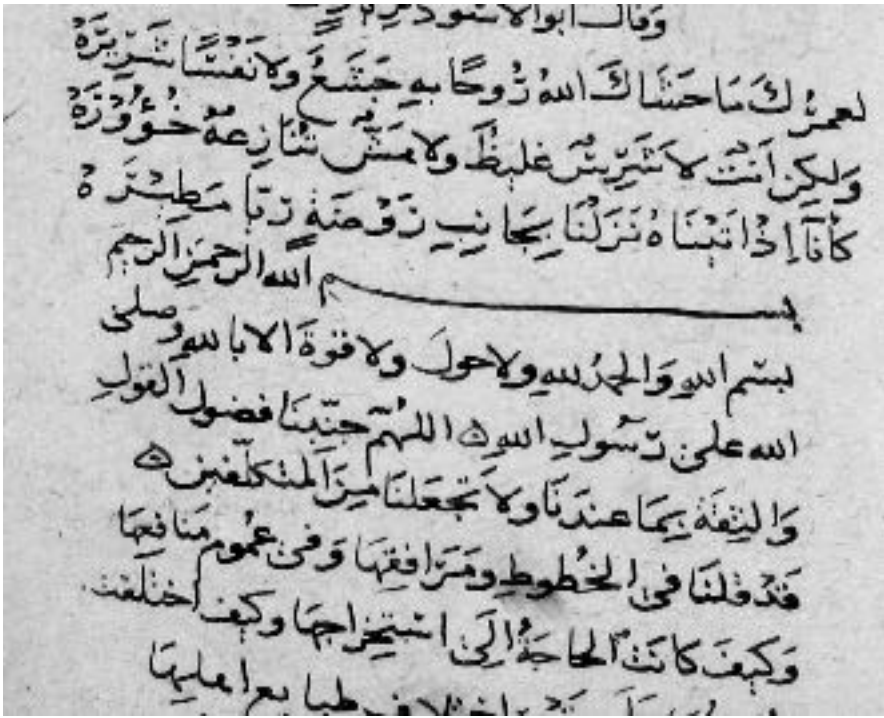 وقال ابو الاسود
لعمرك ما حشاك الله روحا به جشع ولا نفسا شريره
ولكن انت لا شرس غليظ ولا هش تنازعه خووره
كانا اذا تيناه نزلنا بجانب روضة ريا مطيره
بسم الله الرحمن الرحيم
بسم الله والحمد لله ولا حول ولا قوة الا بالله وصلى
الله على رسول الله اللهم جنبنا فضول القول
والثقة بما عندنا ولا تجعلنا من المتكلفين
قد قلنا في الخطوط ومرافقها وفي عموم منافعها
وكيف كانت الحاجة الى استخراجها وكيف اختلفت
اختلاف طبايع اهلها